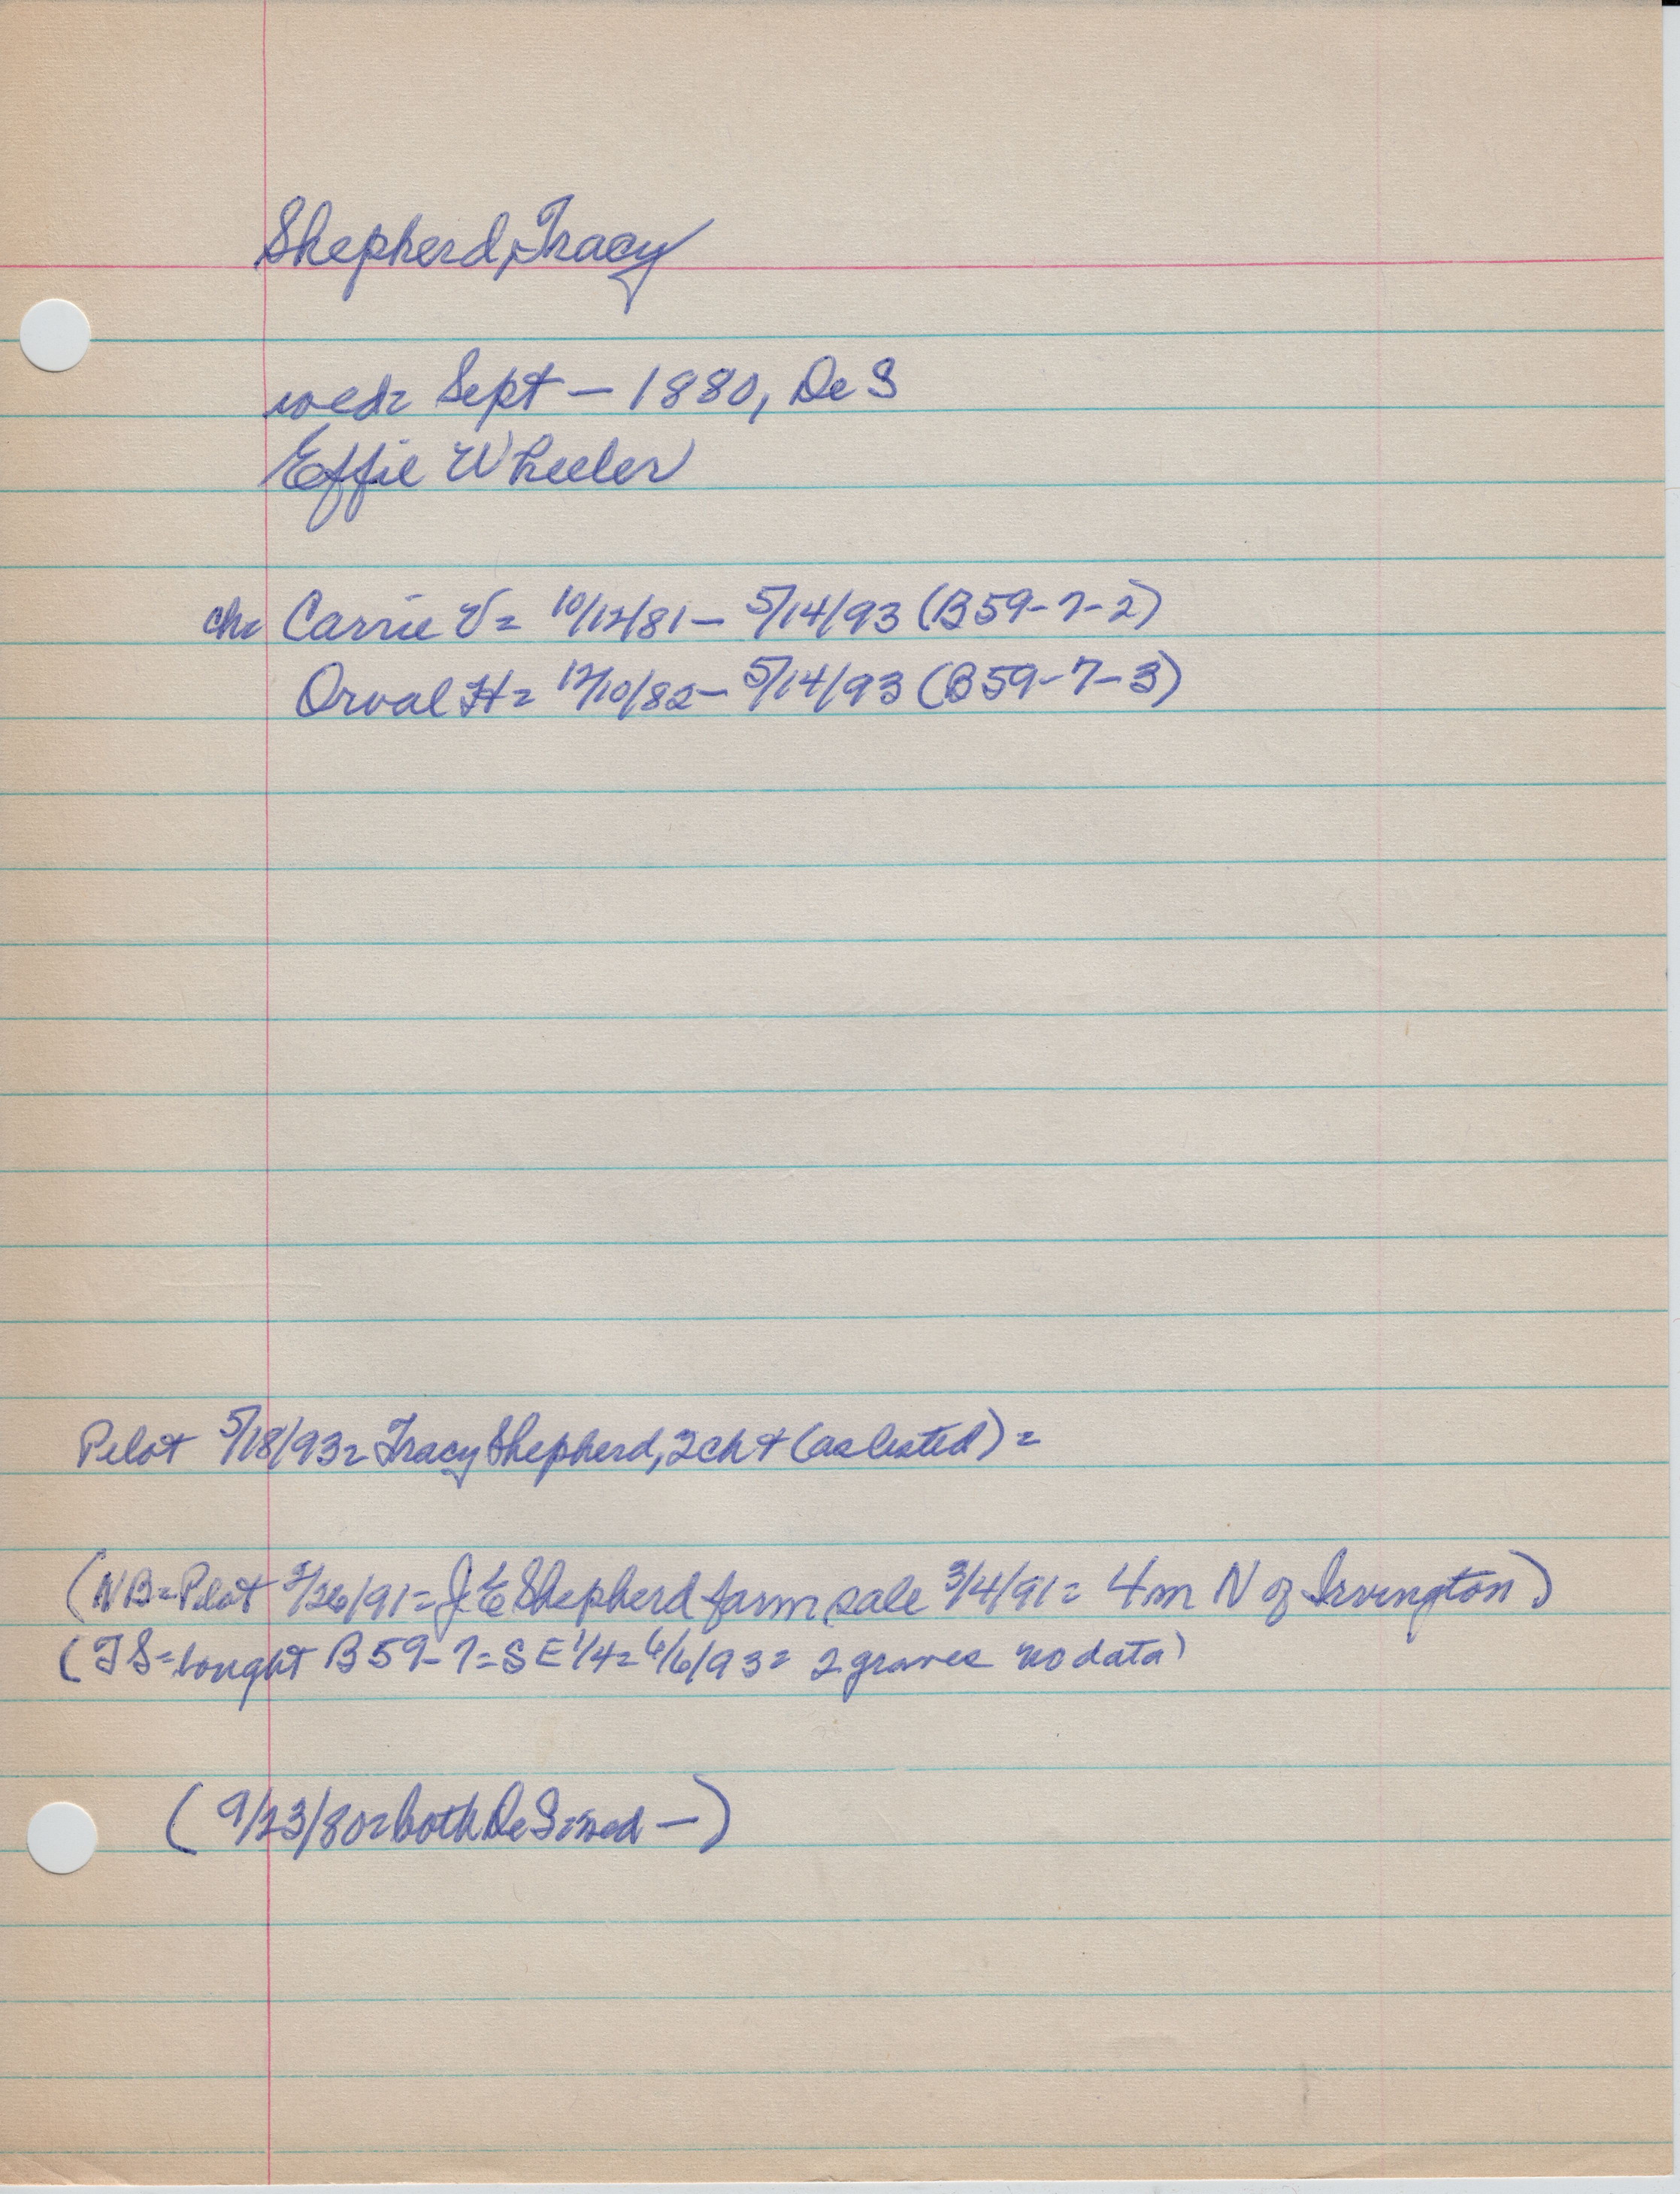 Shepherd, Tracy
wed= Sept – 1880, De S
Effie Wheeler
ch= Carrie V= 10/12/81 – 5/14/93 (B59-7-2)
Orval H= 12/10/82 – 5/14/93 (B59-7-3)
Pilot 5/18/93= Tracy Shepherd, 2 ch + (as listed) =
(NB= Pilot 2/26/91= J E Shepherd farm sale 3/4/91= 4m N of Irvington)
(TS= bought B59-7= SE 1/4= 6/6/93= 2 graves no data)
(9/23/80= both De S= wed –)